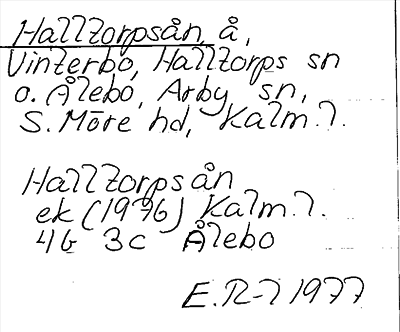 Halltorpsån, å,
Vinterbo, Halltorps sn
o. Ålebo, Arby sn,
S. Möre hd, Kalm. l.
Halltorpsån
ek (1976) Kalm. l.
4G 3c Ålebo
E.R-l 1977